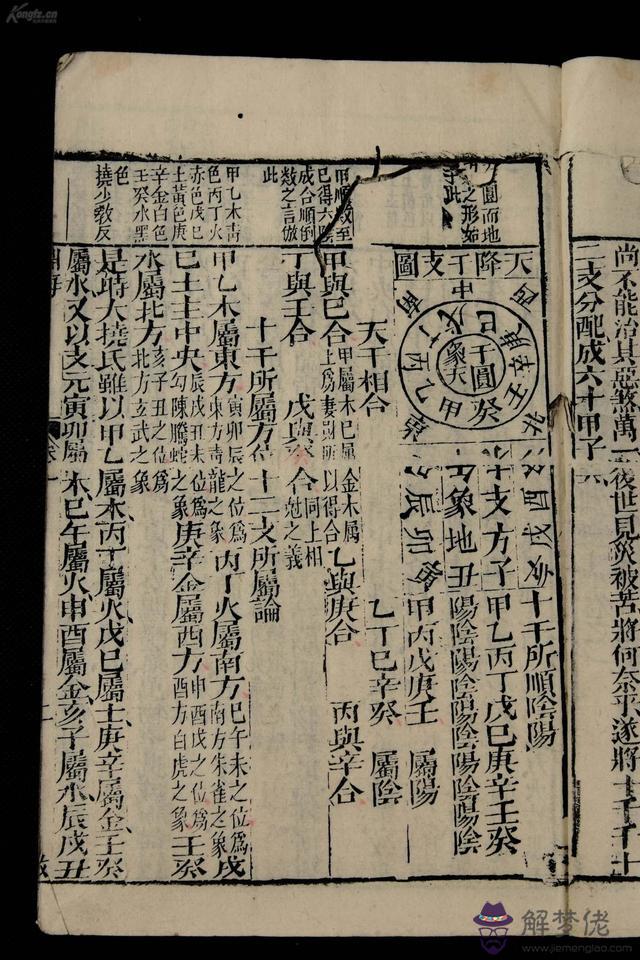 Kongfz.cn
尚不能治其惡煞萬一後世見災被苦將何奈乎遂將十干十
二支分配成六十甲子
圓而地
之形如
此
天降干支圖
十干所順陰陽
甲乙丙丁戊己庚辛壬癸
陽陰陽陰陽陰陽陰陽陰
甲丙戊庚壬 屬陽
乙丁己辛癸 屬陰
天干相合
甲順數至
己得六陰
成合順倒
數之言倣
此
甲與己合 甲屬木己屬土爲妻財所以得合 乙與庚合 丙與辛合
丁與壬合 戊與癸合 同上相尅之義
十干所屬方位 十二支所屬論
甲乙木青
色丙丁火
赤色戊己
土黃色庚
辛金白色
壬癸水黑
色
撓少教反
甲乙木屬東方 寅卯辰之位爲東方青龍之象 丙丁火屬南方 巳午未之位爲南方朱雀之象 戊
己土主中央 辰戌丑未位爲勾陳騰蛇之象 庚辛金屬西方 申酉戌之位爲西方白虎之象 壬癸
水屬北方 亥子丑之位爲北方玄武之象
是時大撓氏雖以甲乙屬木丙丁屬火戊己屬土庚辛屬金壬癸
屬水又以支元寅卯屬木巳午屬火申酉屬金亥子屬水辰戌丑
解梦佬
www.jiemenglao.com